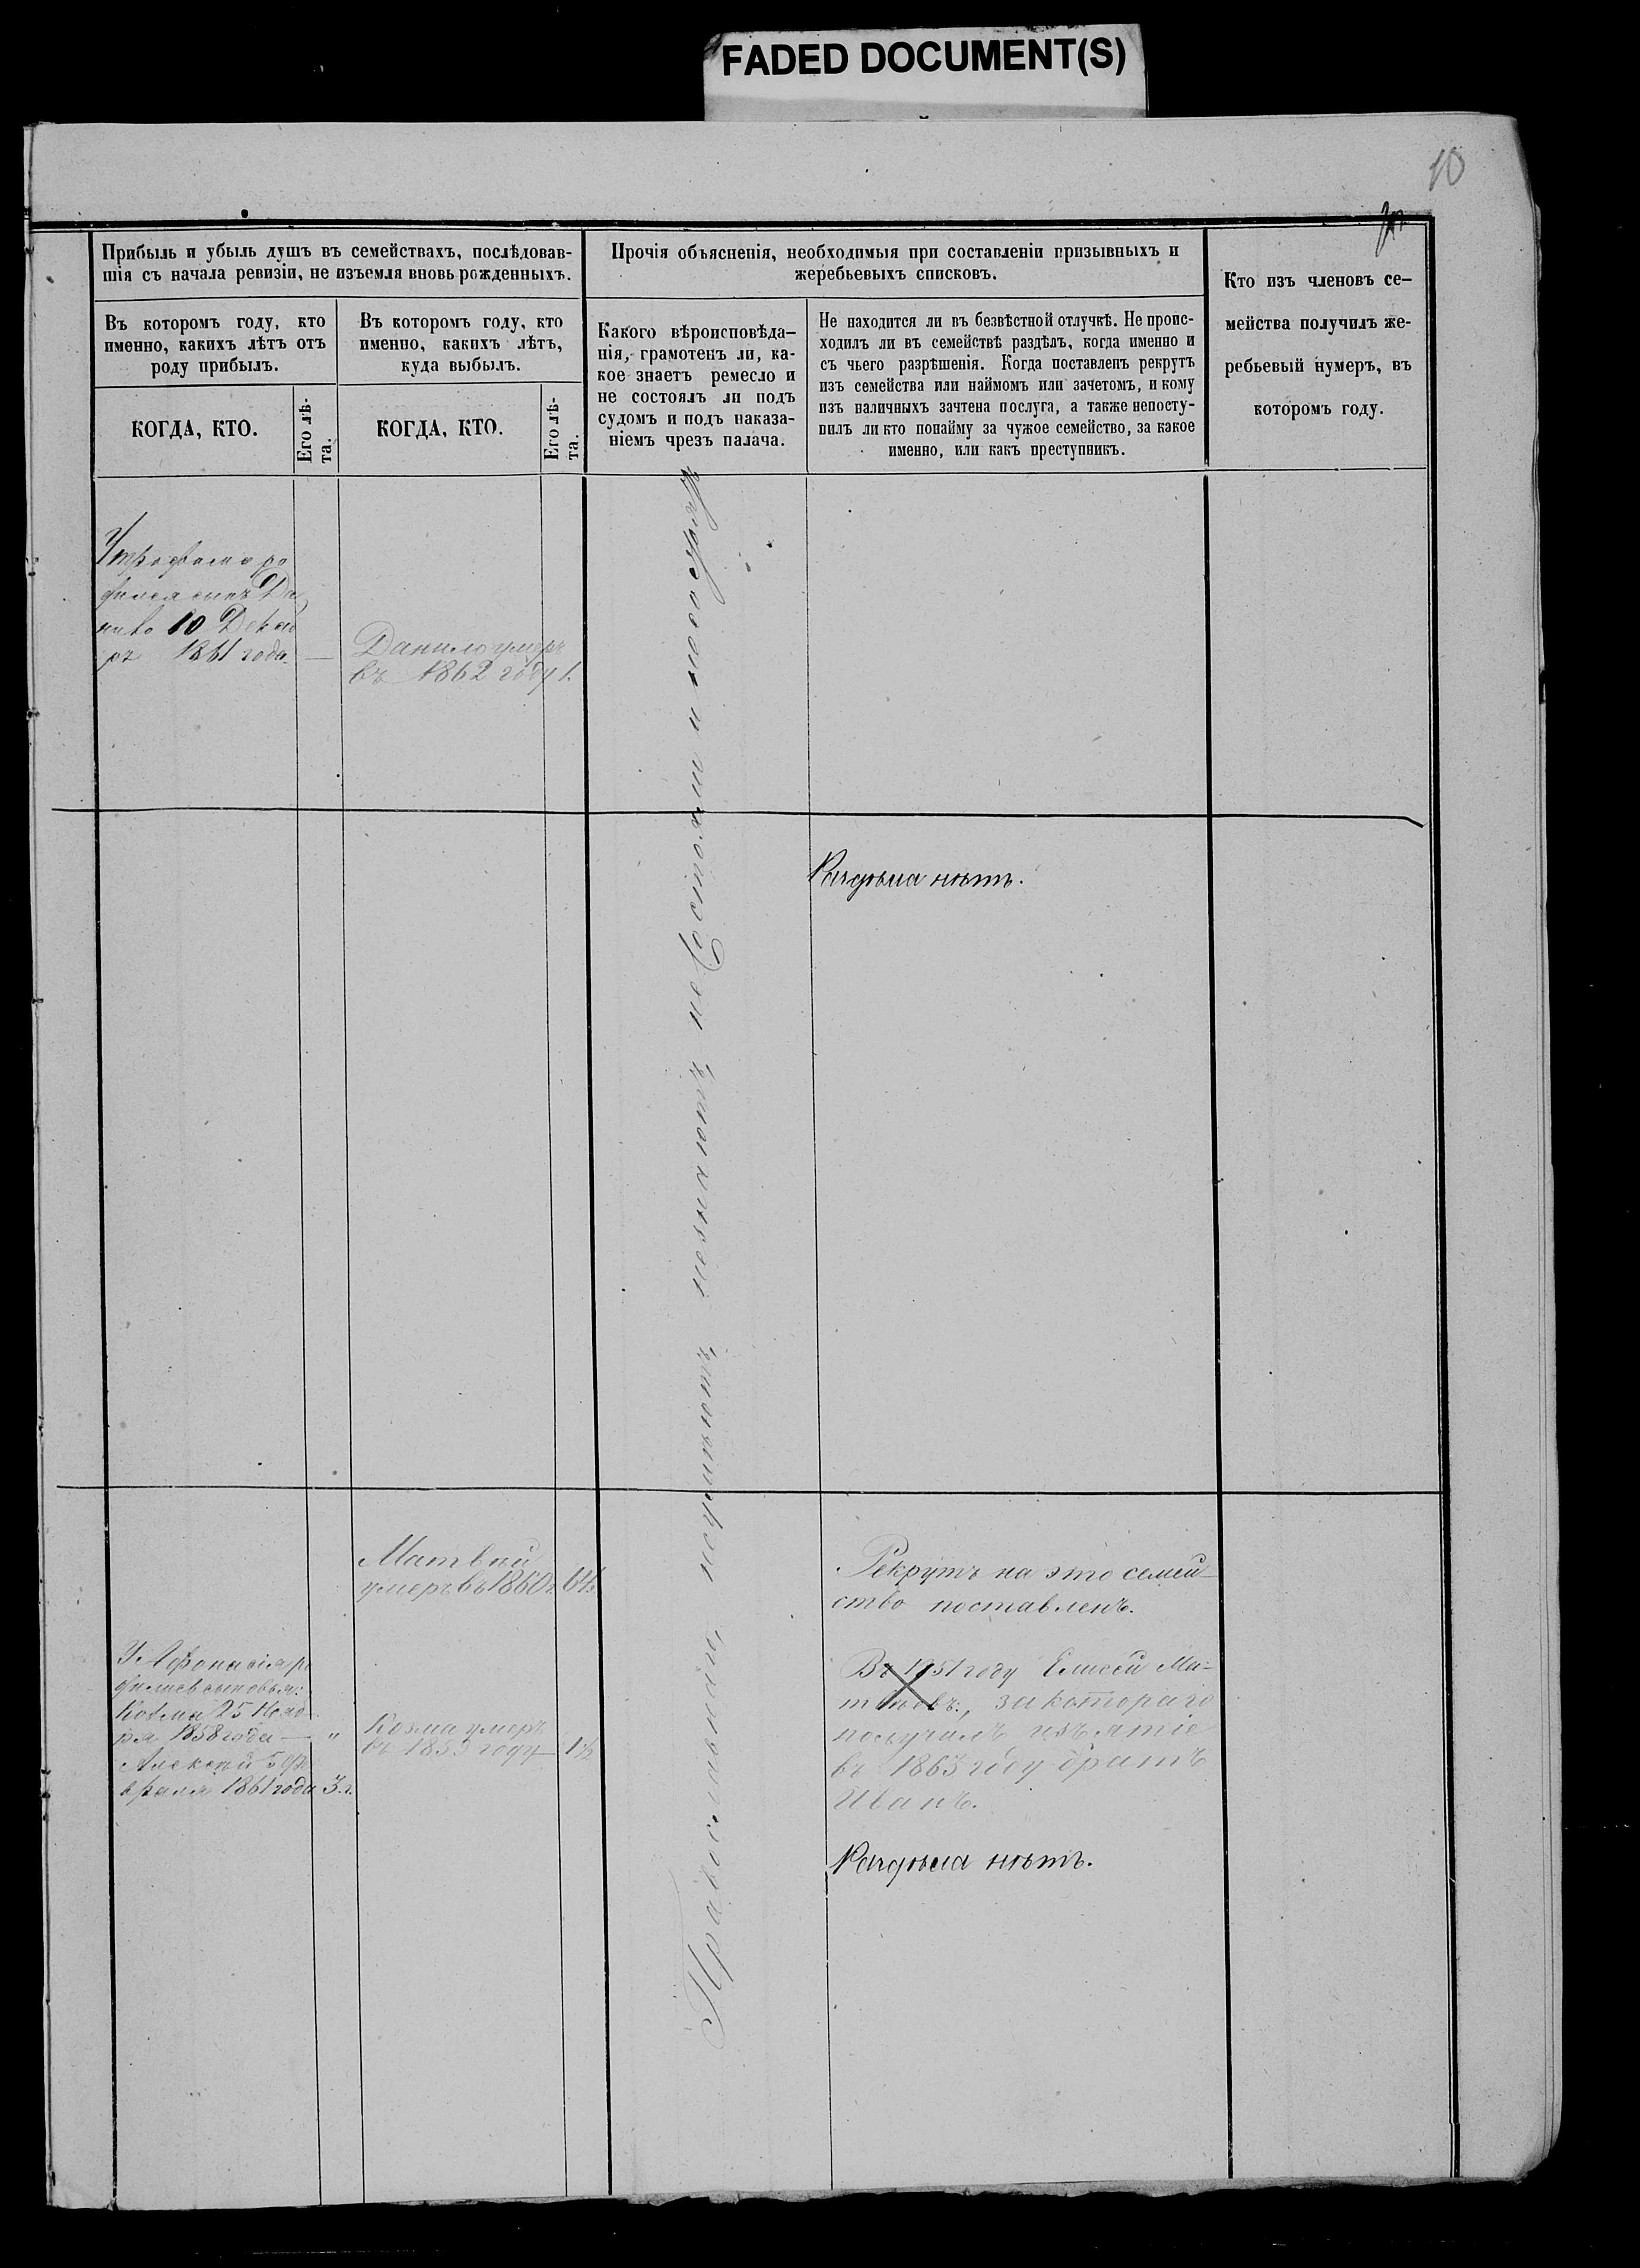 FADED DOCUMENT(S)
10
Прибыль и убыль душъ въ семействахъ, послѣдовав-
шія съ начала ревизіи, не изъемля вновь рожденныхъ.
Въ которомъ году, кто
именно, какихъ лѣтъ отъ
роду прибылъ.
КОГДА, КТО.
Его лѣ-
та.
Въ которомъ году, кто
именно, какихъ лѣтъ,
куда выбылъ.
КОГДА, КТО.
Его лѣ-
та.
Прочія объясненія, необходимыя при составленіи призывныхъ и
жеребьевыхъ списковъ.
Какого вѣроисповѣда-
нія, грамотенъ ли, ка-
кое знаетъ ремесло и
не состоялъ ли подъ
судомъ и подъ наказа-
ніемъ чрезъ палача.
Не находится ли въ безвѣстной отлучкѣ. Не проис-
ходилъ ли въ семействѣ раздѣлъ, когда именно и
съ чьего разрѣшенія. Когда поставленъ рекрутъ
изъ семейства или наймомъ или зачетомъ, и кому
изъ наличныхъ зачтена послуга, а также непосту-
пилъ ли кто понайму за чужое семейство, за какое
именно, или какъ преступникъ.
Кто изъ членовъ се-
мейства получилъ же-
ребьевый нумеръ, въ
которомъ году.
У Трофима ро
дился сынъ Да
нило 10 Декаб
ря 1861 года —
Данило умеръ
въ 1862 году 1.
Раздѣла нѣтъ.
Матвѣй
умеръ въ 1860 г.
Рекрутъ на это семей-
ство поставленъ.
У Афонасія ро
дились сыновья:
Козма 25 Нояб
ря 1858 года — "
Алексѣй 5 Фе
враля 1861 года 3 г.
Козма умеръ
въ 1859 году 1½
Въ 1851 году Елисей Ма-
твѣевъ, за котораго
получилъ изъятіе
въ 1863 году братъ
Иванъ.
Раздѣла нѣтъ.
Православнаго, неумѣютъ, незнаютъ, не Состояли и